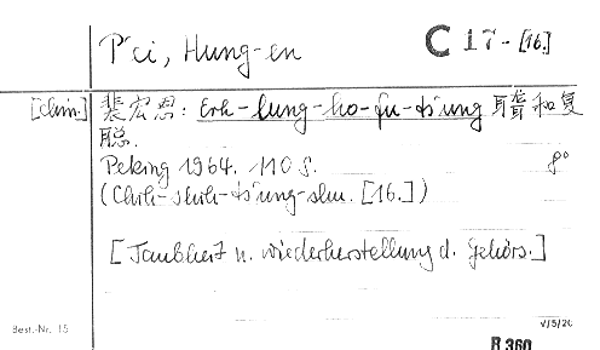 P'ei, Hung-en
C 17-[16.]
[chin.] 裴宏恩: Erh-lung-ho-fu-ts'ung 耳聋和复
聪.
Peking 1964. 110 S. 8°
(Chih-shih-ts'ung-shu. [16.])
[Taubheit u. wiederherstellung d. Gehörs.]
Best.-Nr. 15
V/5/20
R 360